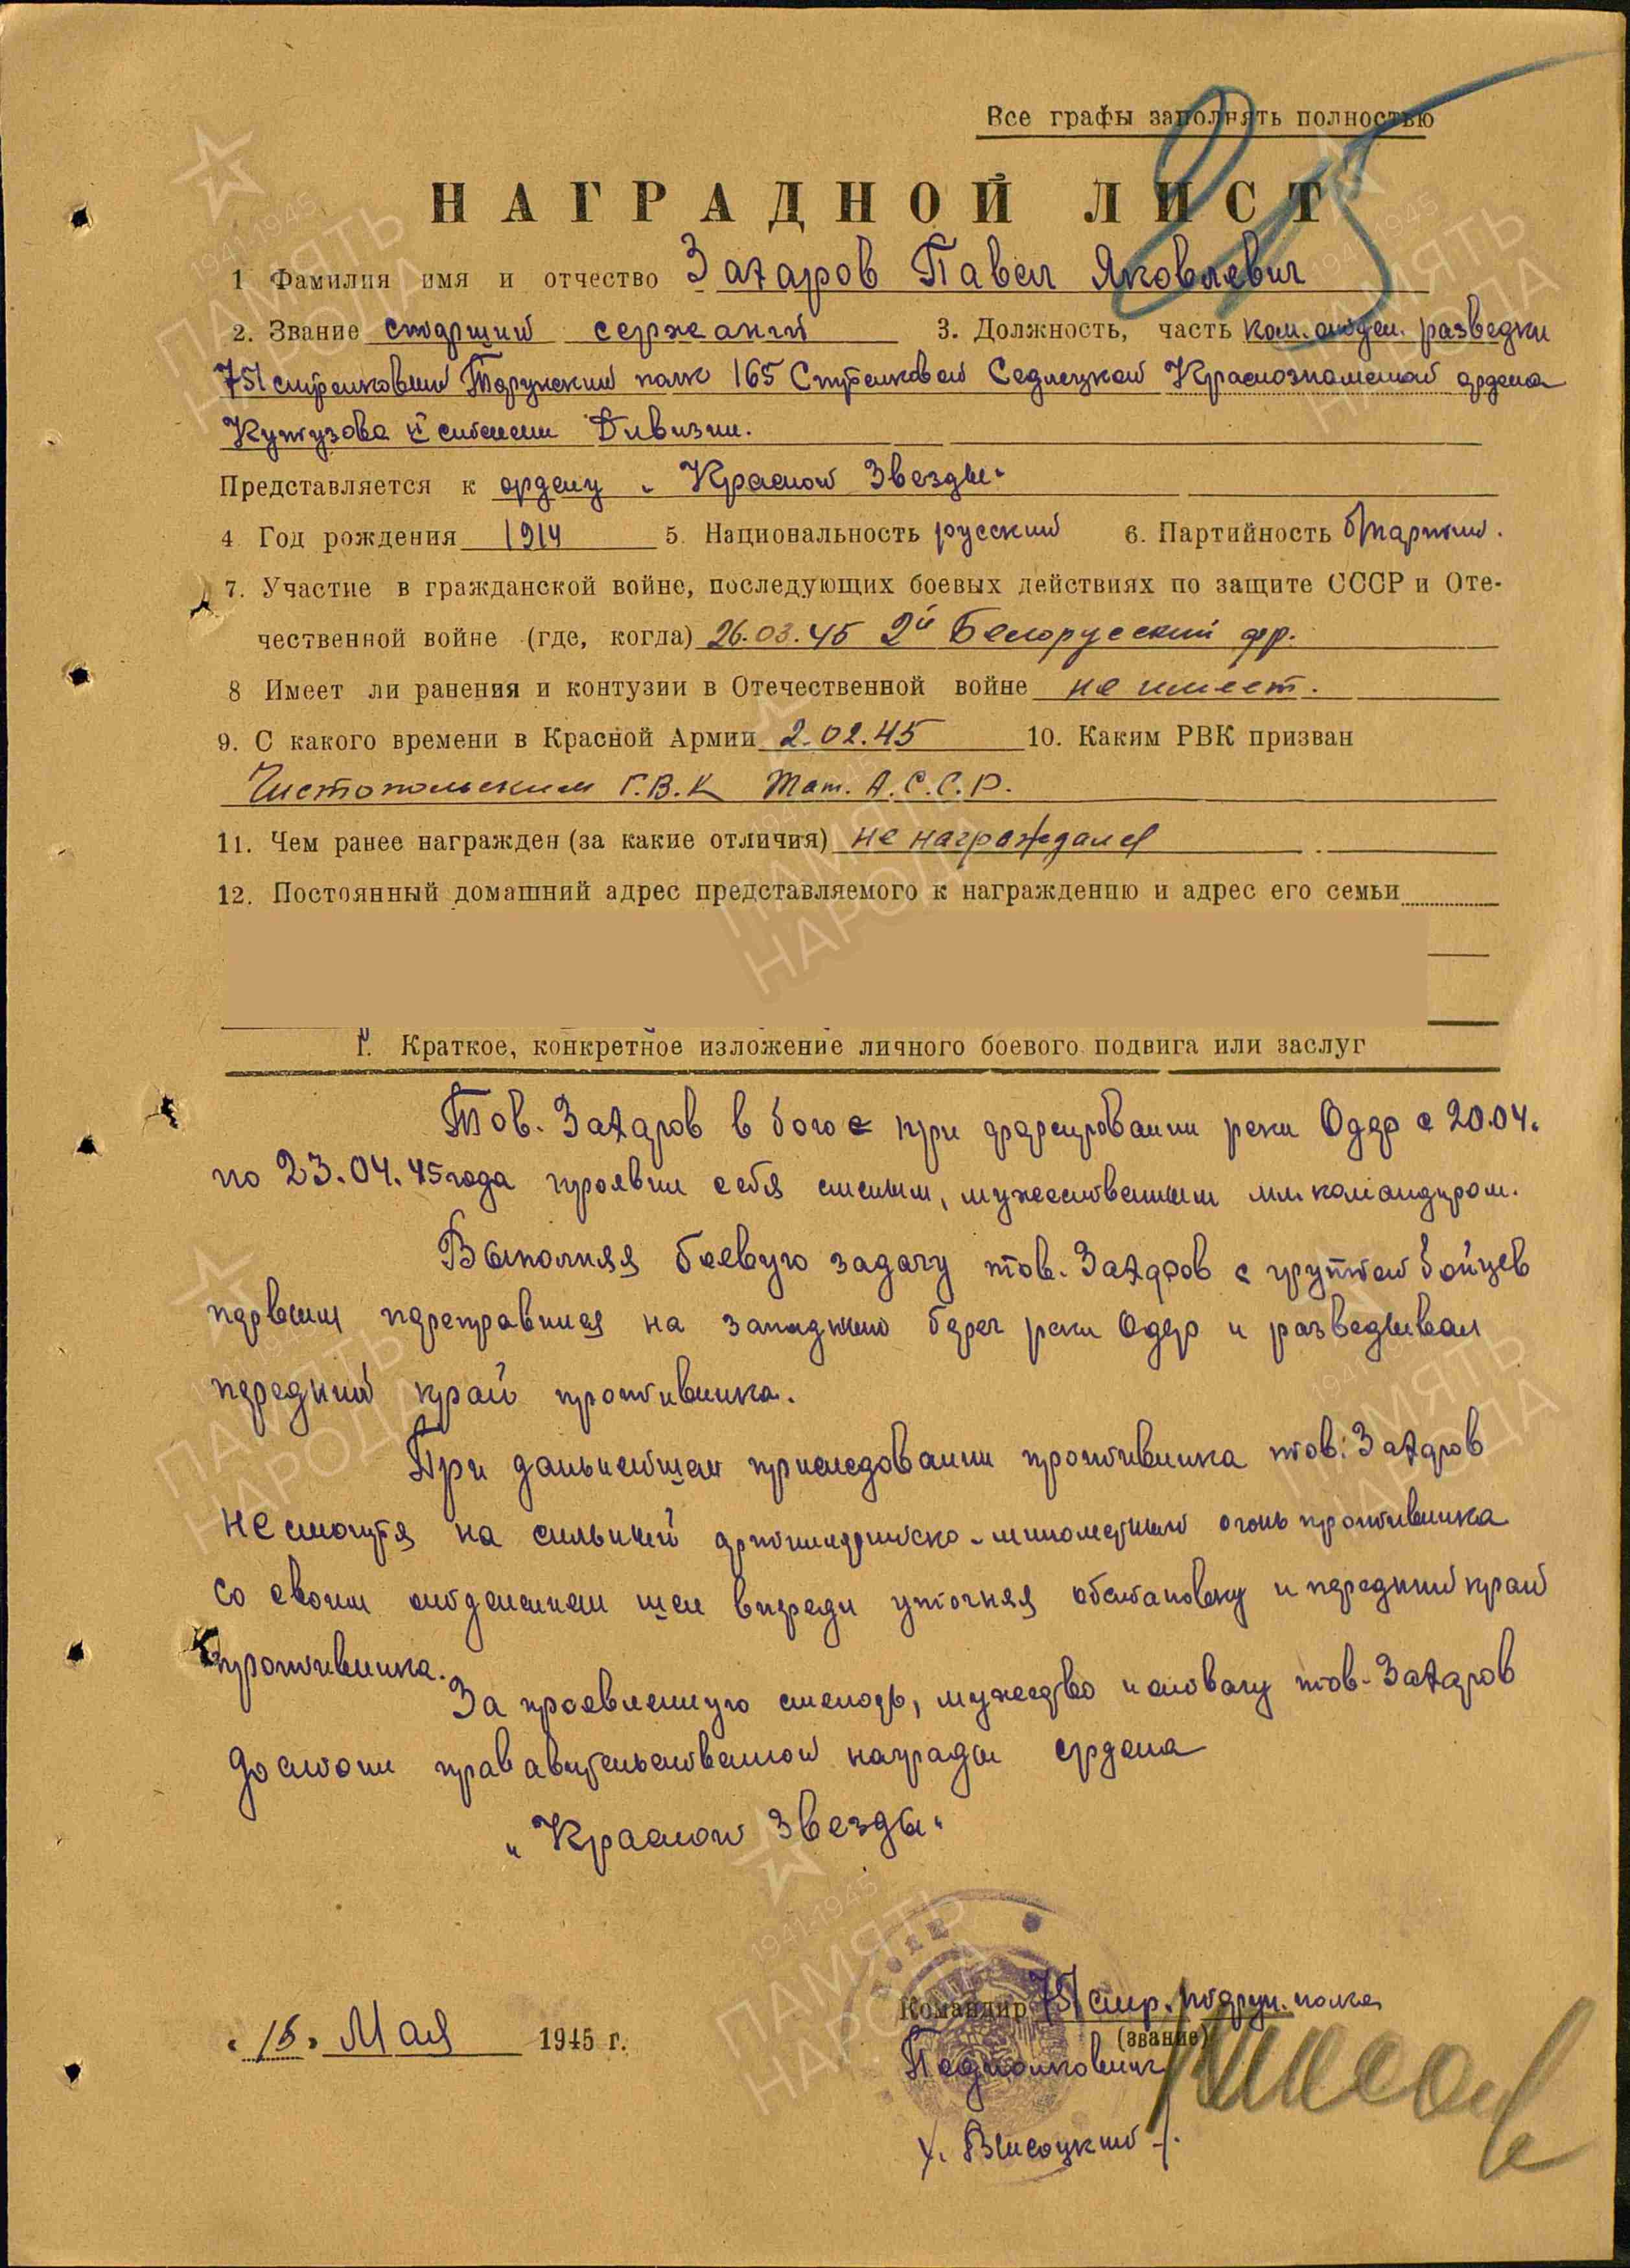 Все графы заполнять полностью
НАГРАДНОЙ ЛИСТ
1 Фамилия имя и отчество Захаров Павел Яковлевич
2. Звание старший сержант 3. Должность, часть ком. отдел. разведки
751 стрелковый Торунский полк 165 Стрелковой Седлецкой Краснознаменой ордена
Кутузова II степени Дивизии.
Представляется к ордену „Красной Звезды"
4 Год рождения 1914 5. Национальность русский 6. Партийность б/партий.
7. Участие в гражданской войне, последующих боевых действиях по защите СССР и Оте-
чественной войне (где, когда) 26.03.45 2й Белорусский фр.
8 Имеет ли ранения и контузии в Отечественной войне не имеет.
9. С какого времени в Красной Армии 2.02.45 10. Каким РВК призван
Чистопольским Г.В.К Тат. А.С.С.Р.
11. Чем ранее награжден (за какие отличия) не награждался
12. Постоянный домашний адрес представляемого к награждению и адрес его семьи
I. Краткое, конкретное изложение личного боевого подвига или заслуг
Тов. Захаров в бою при форсировании реки Одер с 20.04.
по 23.04.45 года проявил себя смелым, мужественным мл. командиром.
Выполняя боевую задачу тов. Захаров с группой бойцев
первым переправился на западный берег реки Одер и разведывал
передний край противника.
При дальнейшем приследовании противника тов. Захаров
не смотря на сильный артиллерийско-минометный огонь противника
со своим отделением шел впереди уточняя обстановку и передний край
противника.
За проявленную смелость, мужество и отвагу тов. Захаров
достоин правительственной награды ордена
„Красной Звезды"
Командир 751 стр. Торун. полка
(звание)
"15" Мая 1945 г.
Подполковник
/. Высоцкий /.
ПАМЯТЬ НАРОДА
1941-1945